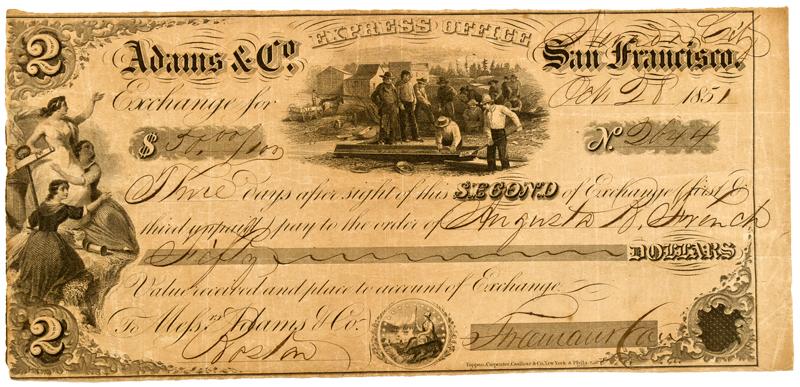 2
EXPRESS OFFICE
Adams & Co. San Francisco.
Oct 28 1851
Exchange for
$ 50.00/100 No 2644
Three days after sight of this SECOND of Exchange (first &
third unpaid) pay to the order of Augusta B. French
Fifty DOLLARS
Value received and place to account of Exchange
To Messrs Adams & Co.
Boston
Freeman & Co
2
Toppan, Carpenter, Casilear & Co. New York & Phila.